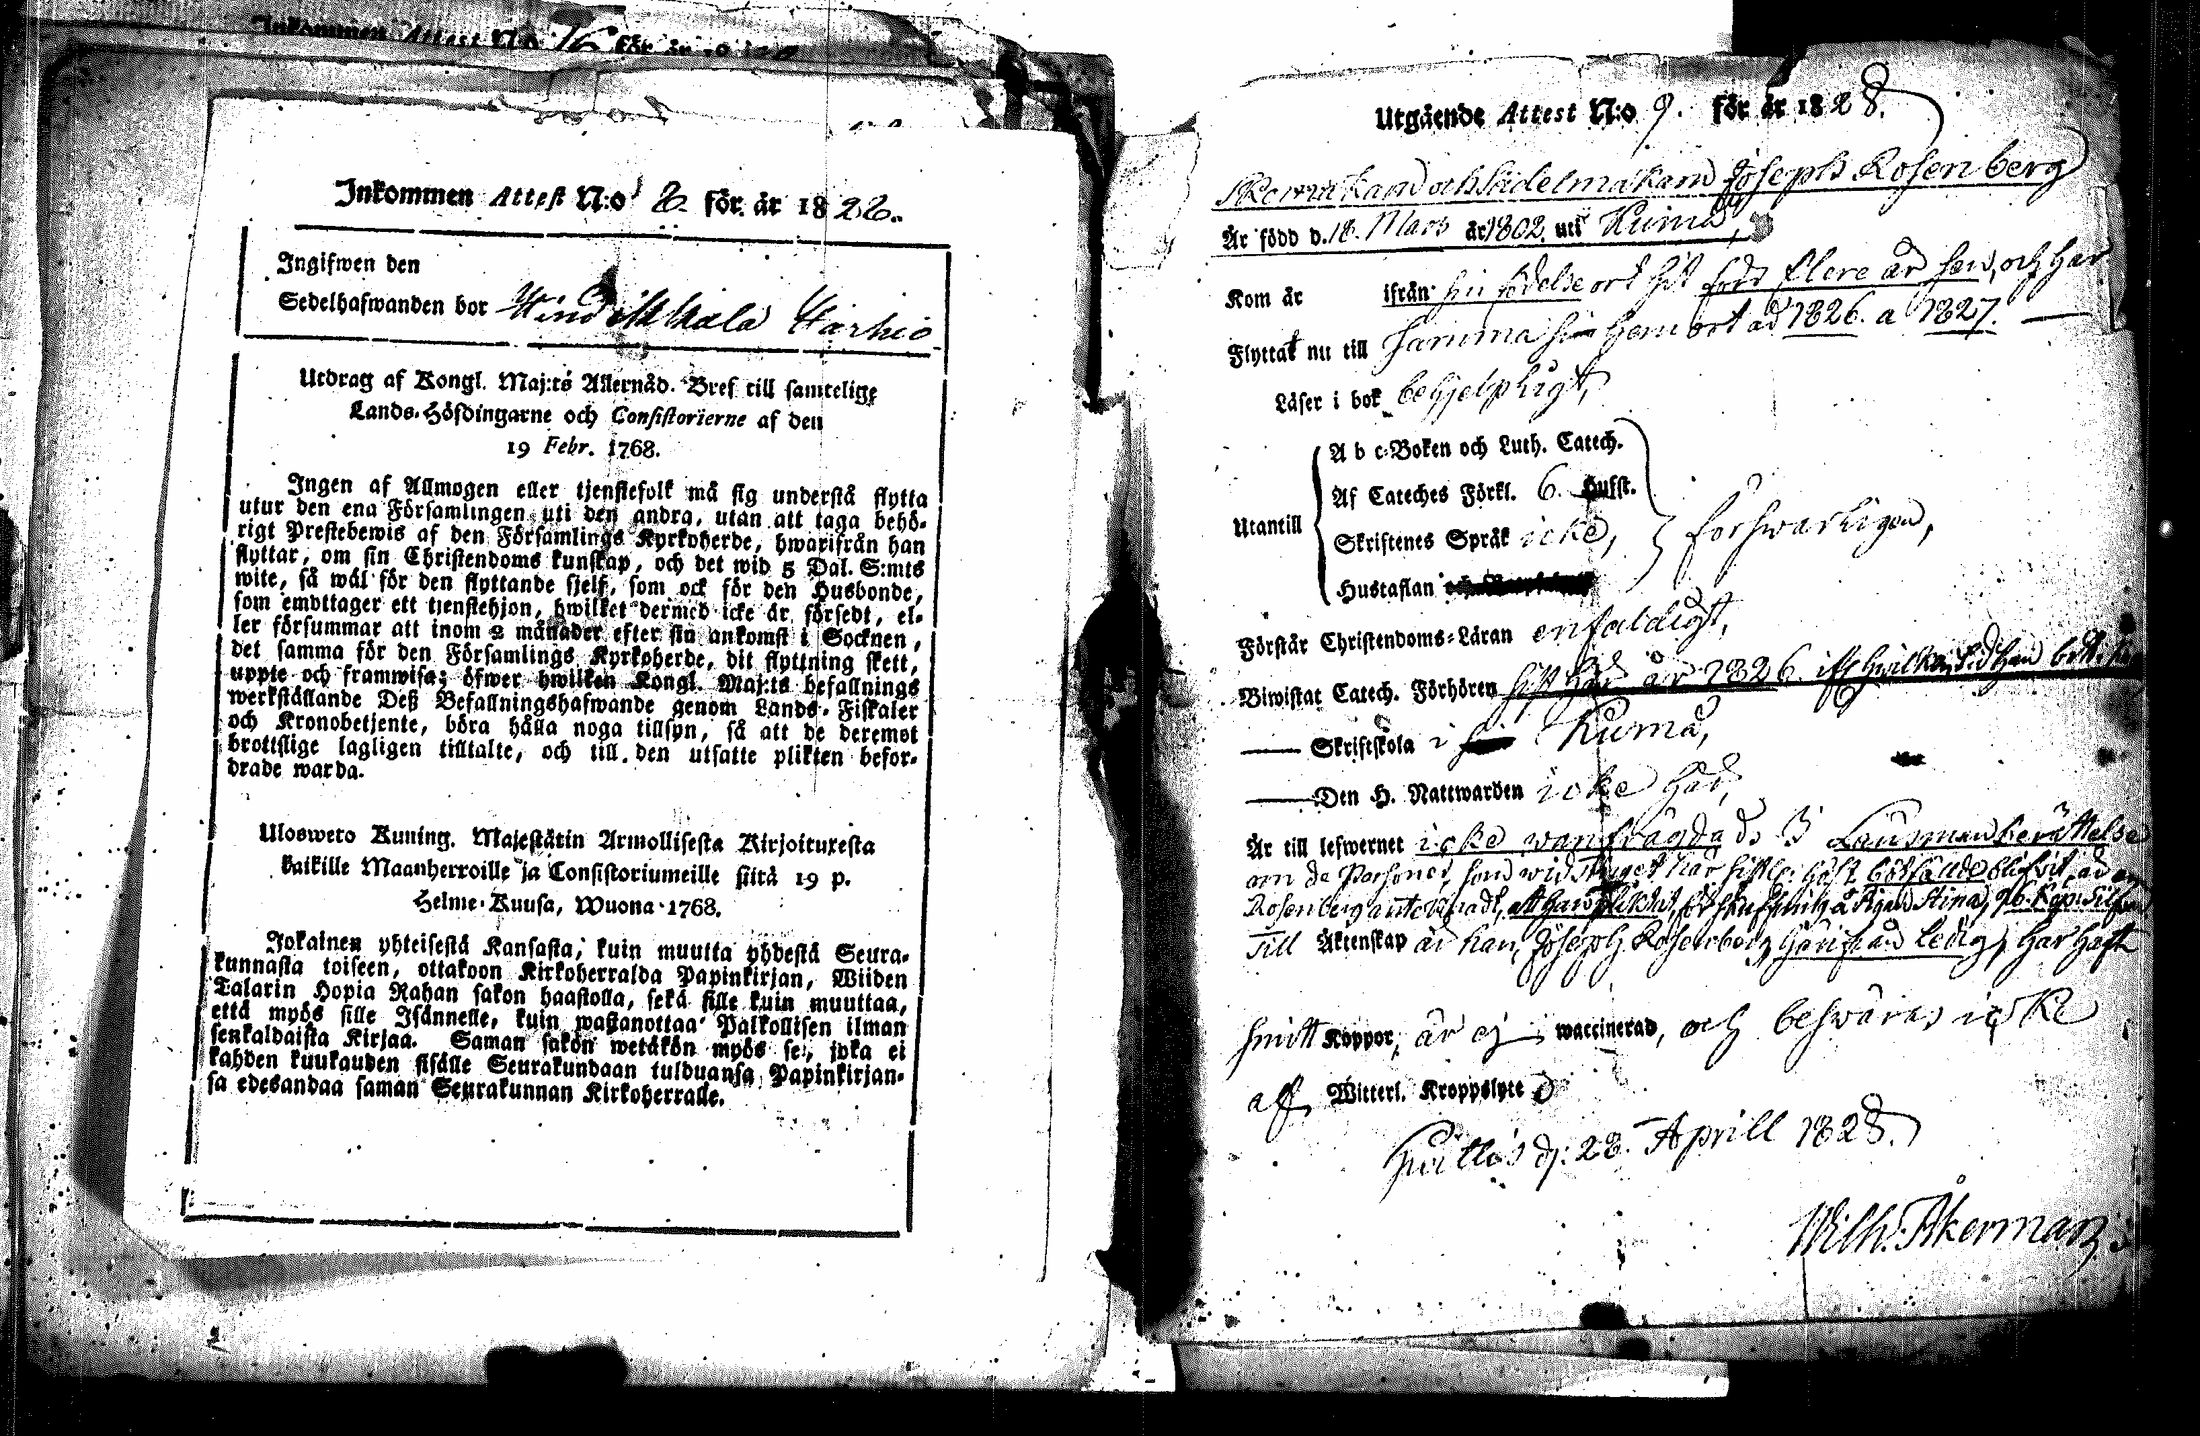 Inkommen Attest N:o 76 för år
Inkommen Attest N:o 2. för år 1822.
Ingifwen den
Sedelhafwanden bor
Utdrag af Kongl. Maj:ts Allernåd. Bref till samtelige
Lands-Höfdingarne och Consistorierne af den
19 Febr. 1768.
Ingen af Allmogen eller tjenstefolk må sig understå flytta
utur den ena Församlingen uti den andra, utan att taga behö-
rigt Prestebewis af den Församlings Kyrkoherde, hwarifrån han
flyttar, om sin Christendoms kunskap, och det wid 5 Dal. S:mts
wite, så wäl för den flyttande sjelf, som ock för den Husbonde,
som emottager ett tjenstehjon, hwilket dermed icke är försedt, el-
ler försummar att inom 2 månader efter sin ankomst i Socknen,
det samma för den Församlings Kyrkoherde, dit flyttning skett,
uppte och framwisa; öfwer hwilken Kongl. Maj:ts befallnings
werkställande Deß Befallningshafwande genom Lands-Fiskaler
och Kronobetjente, böra hålla noga tillsyn, så att de deremot
brottslige lagligen tilltalte, och till den utsatte plikten befor-
drade warda.
Ulosweto Kuning. Majestätin Armollisesta Kirjoituxesta
kaikille Maanherroille ja Consistoriumeille siitä 19 p.
Helme-Kuusa, Wuona 1768.
Jokainen yhteisestä Kansasta, kuin muutta yhdestä Seura-
kunnasta toiseen, ottakoon Kirkoherralda Papinkirjan, Wiiden
Talarin Hopia Rahan sakon haastolla, sekä sille kuin muuttaa,
että myös sille Isännelle, kuin wastanottaa Palkollisen ilman
senkaldaista Kirjaa. Saman sakon wetäkön myös se, joka ei
kahden kuukauden sisälle Seurakundaan tulduansa, Papinkirjan-
sa edesandaa saman Seurakunnan Kirkoherralle.
Utgående Attest N:o 9. för år 1828.
Skomakaren och Sadelmakaren Joseph Rosenberg
Är född d. 18. Mars år 1802. uti Kumo,
Kom år ifrån sin födelse ort hit för flere år sen, och har
Flyttat nu till samma sin hemort år 1826. a 1827.
Läser i bok behjelpligt,
A b c-Boken och Luth. Catech.
Af Cateches Förkl. 6. Hufst.
Utantill
Skriftenes Språk icke,
försvarligen,
Hustaflan
Förstår Christendoms-Läran enfaldigt,
Biwistat Catech. Förhören sist här år 1826.
Skriftskola i Kumo,
Den H. Nattwarden icke här,
Är till lefwernet icke wanfrägdad. Länsman berättelse
om de Personer, som wid
Rosenberg
Till Äktenskap är han, Joseph Rosenberg, härifrån ledig, har haft
smitt Koppor, är ej waccinerad, och beswäras icke
af Witterl. Kroppslyte
d. 28. Aprill 1828.
Wilh. Åkerman